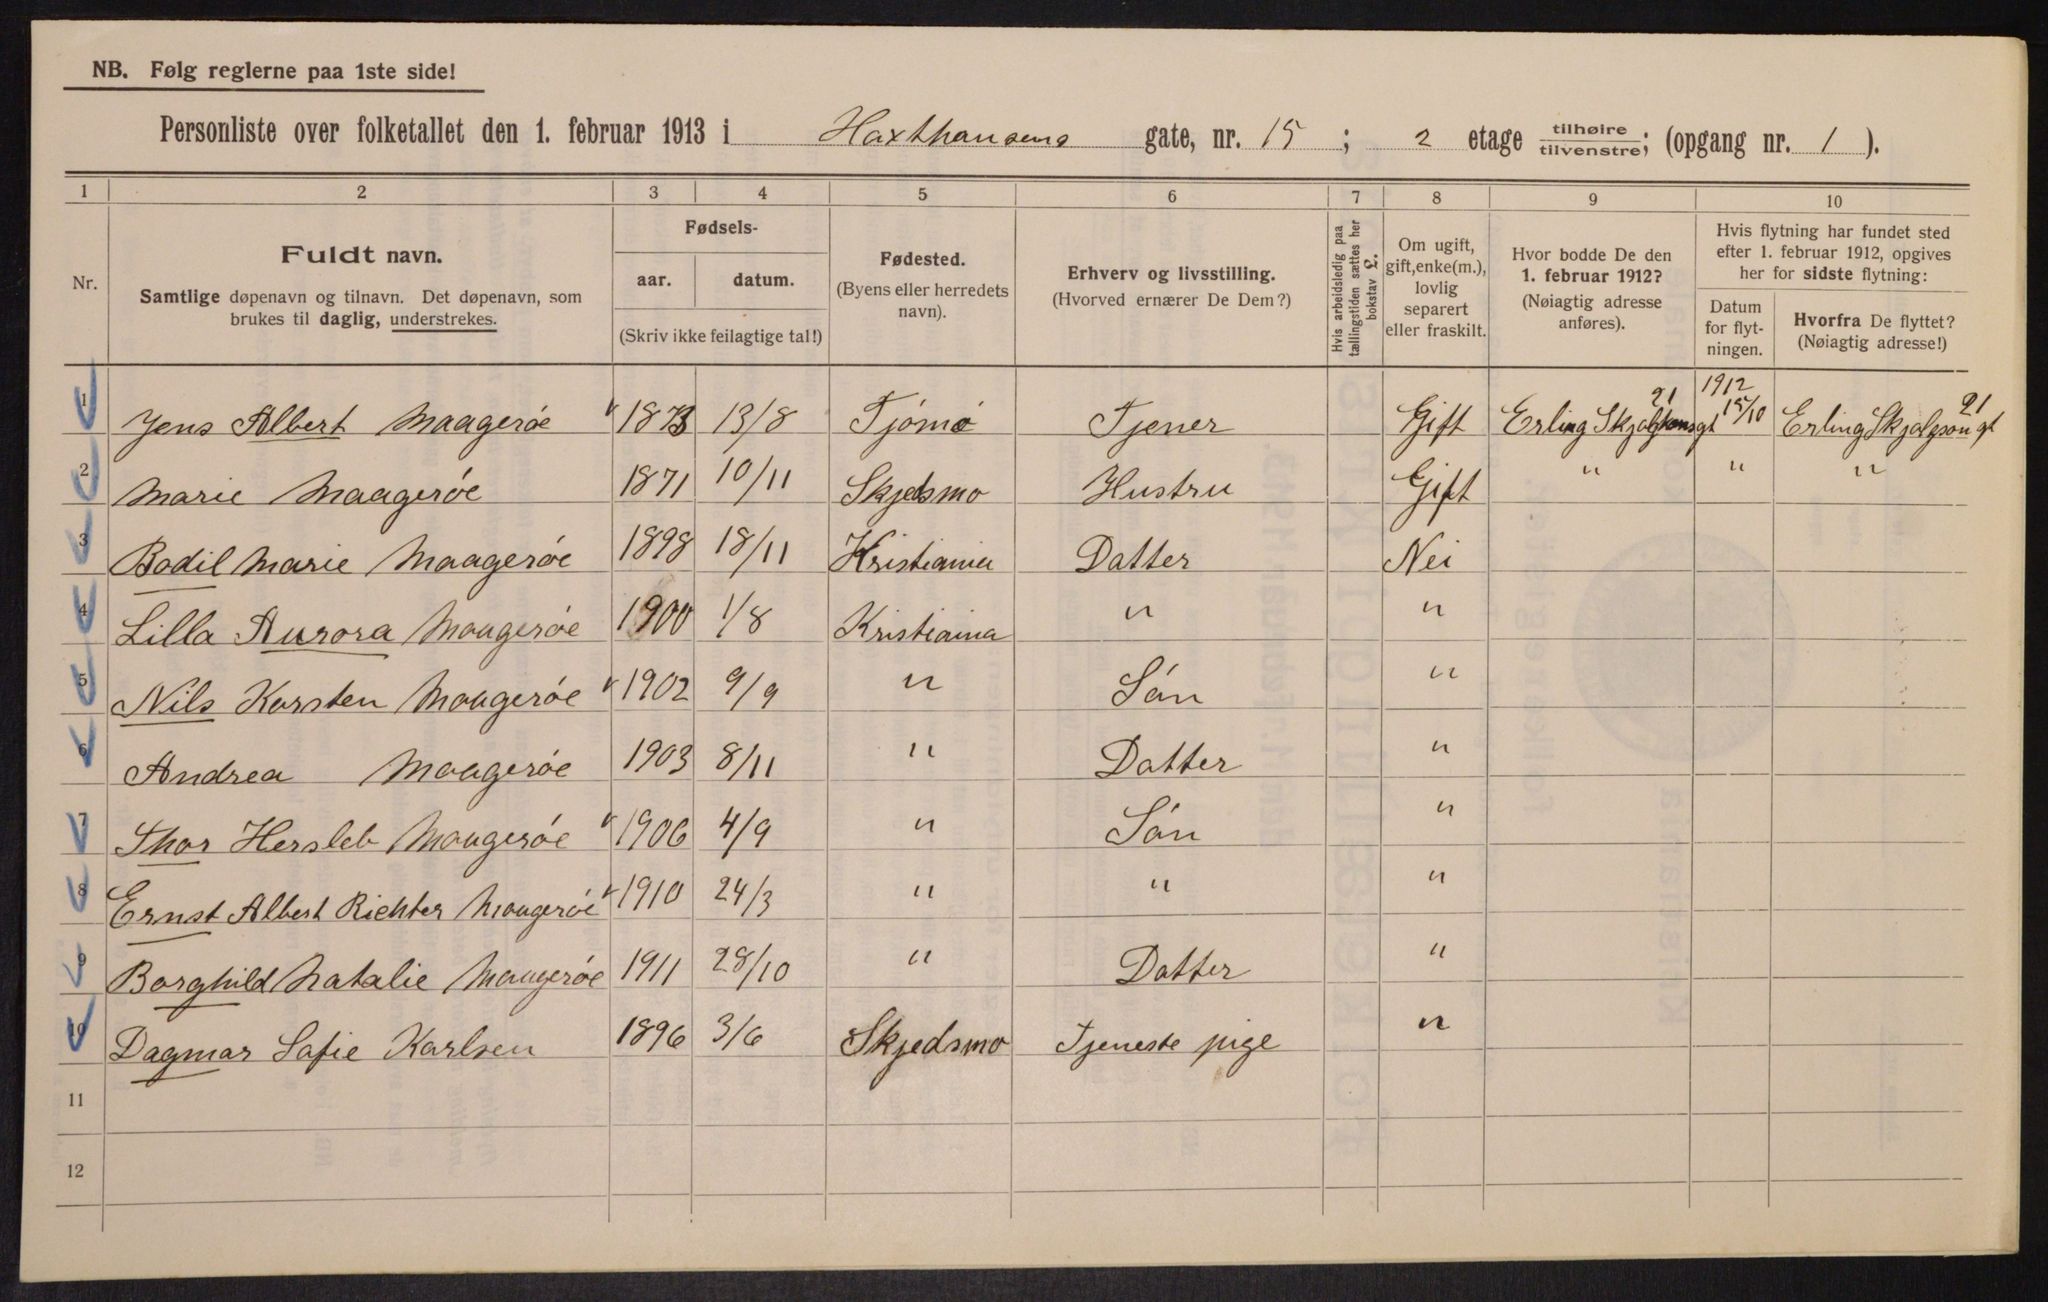 NB. Følg reglerne paa 1ste side!
Personliste over folketallet den 1. februar 1913 i Haxthausens gate, nr. 15 ; 2 etage tilhøire tilvenstre; (opgang nr. 1 ).
1 2 3 4 5 6 7 8 9 10
Nr.
Fuldt navn.
Samtlige døpenavn og tilnavn. Det døpenavn, som
brukes til daglig, understrekes.
Fødsels-
aar. datum.
(Skriv ikke feilagtige tal!)
Fødested.
(Byens eller herredets
navn).
Erhverv og livsstilling.
(Hvorved ernærer De Dem?)
Hvis arbeidsledig paa
tællingstiden sættes her
bokstav L.
Om ugift,
gift, enke(m.),
lovlig
separert
eller fraskilt.
Hvor bodde De den
1. februar 1912?
(Nøiagtig adresse
anføres).
Hvis flytning har fundet sted
efter 1. februar 1912, opgives
her for sidste flytning:
Datum
for flyt-
ningen.
Hvorfra De flyttet?
(Nøiagtig adresse!)
1 Jens Albert Maagerøe 1873 13/8 Tjömö Tjener Gift Erling Skjalgsonsgt 21 1912 15/10 Erling Skjalgson gt 21
2 Marie Maagerøe 1871 10/11 Skjedsmo Hustru Gift " " "
3 Bodil Marie Maagerøe 1898 18/11 Kristiania Datter Nei
4 Lilla Aurora Maagerøe 1900 1/8 Kristiania " "
5 Nils Karsten Maagerøe 1902 9/9 " Sön "
6 Andrea Maagerøe 1903 8/11 " Datter "
7 Thor Hersleb Maagerøe 1906 4/9 " Sön "
8 Ernst Albert Richter Maagerøe 1910 24/3 " " "
9 Borghild Natalie Maagerøe 1911 28/10 " Datter "
10 Dagmar Sofie Karlsen 1896 3/6 Skjedsmo Tjeneste pige "
11
12